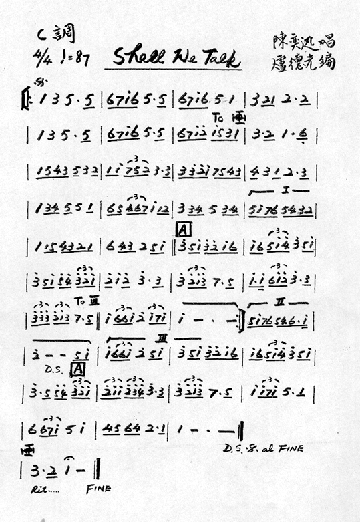 C調
4/4 ♩=87 Shall We Talk 陳奕迅 唱
編
𝄋
1 3 5 . 5 | 6 7 i 6 5 . 5 | 6 7 i 6 5 . 1 | 3 2 1 2 . 2 |
To
1 3 5 . 5 | 6 7 i 6 5 . 5 | 6 7 i 2 i 5 3 1 | 3 . 2 1 . 6 |
1 5 4 3 5 3 2 | 1 i 7 5 2 3 . 3 | 3 3 2 i 7 5 4 3 | 4 3 1 2 . 3 |
I
1 3 4 5 5 1 | 6 5 4 6 7 i i 2 | 3 3 4 5 3 4 | 5 i 7 6 5 4 3 2 |
A
1 . 5 4 3 2 1 | 6 4 3 2 5 i | 3 5 i 3 2 i 6 | i 6 5 i 4 3 5 i |
3 5 i 5 4 3 2 i | 2 i 2 3 . 3 | 3 2 i 3 7 . 5 | i . i 6 i 2 3 . 3 |
To III II
3 3 3 2 i 3 7 . 5 | i 6 6 i 2 i 7 i | i - . - | 5 i 7 6 5 4 6 . i |
III
2 - - 5 i | i 6 6 i 2 5 i | 3 5 i 3 2 i 6 | i 6 5 i 4 3 5 i |
D.S. A
3 . 5 5 4 3 2 i | 2 i i 2 3 4 3 . 3 | 3 2 i 3 7 . 5 | i i 7 i 5 . 1 |
6 6 7 i 5 i | 4 5 6 4 2 . 1 | 1 - . - |
D.S. 𝄋. al FINE
3 . 2 i - |
Rit..... FINE